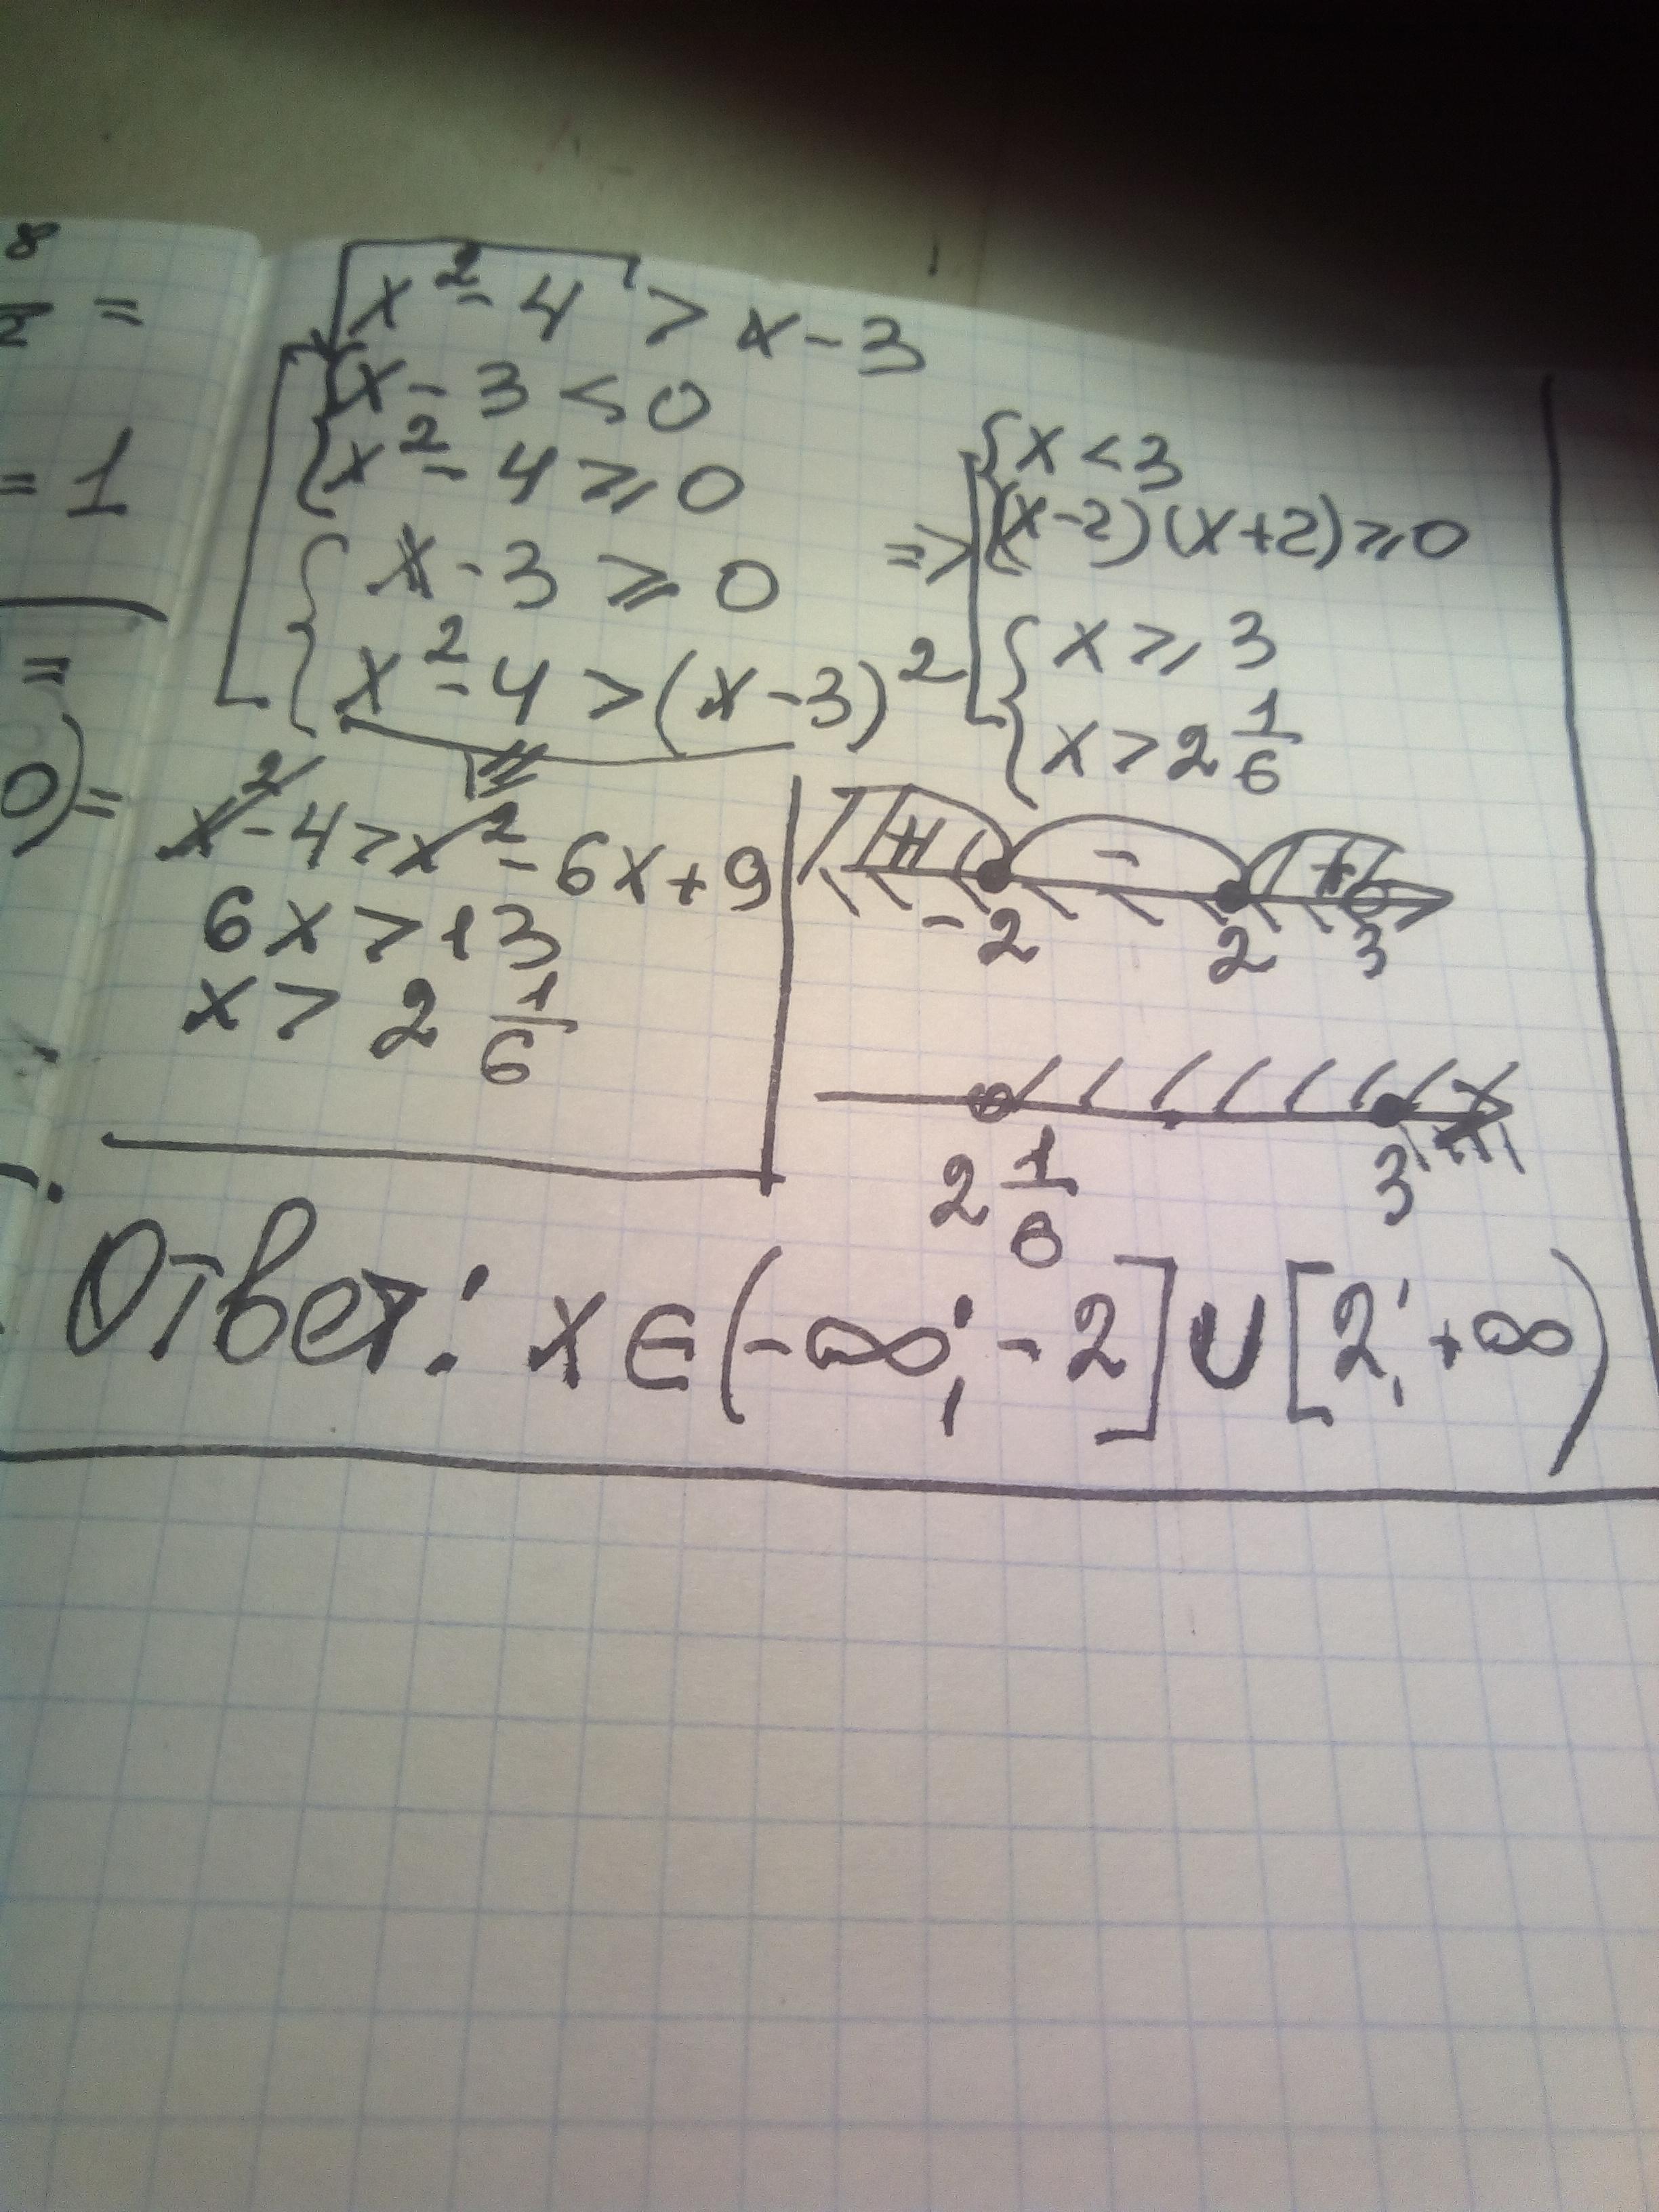 8
2 =
= 1
=
0) =
√x² - 4 > x - 3
{ x - 3 < 0
{ x² - 4 ⩾ 0
{ x - 3 ⩾ 0
{ x² - 4 > (x - 3)²
=> { x < 3
{ (x - 2)(x + 2) ⩾ 0
{ x ⩾ 3
{ x > 2 1/6
x² - 4 > x² - 6x + 9
6x > 13
x > 2 1/6
+ - +
-2 2 3
2 1/6 3
Ответ: x ∈ (-∞; -2] ∪ [2; +∞)